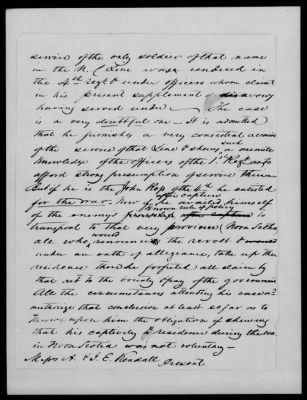 service of the only soldier of that name
in the N. C Line was rendered in
the 4th Regt under officers whom claim
in his present supplement
having served under The case
is a very doubtful one. It is admitted
that he furnishes a very consistent account
of the service of that Line & shews such a minute
knowledge of the officers of the 1st Regt as to
afford strong presumption of service there
But if he is the John Ross of the 4th he enlisted
for the war. Now if he availed himself
after capture
of the enemy's known rule of policy to
transport to that very province (Nova Scotia
all who would renounce the revolt &
under an oath of allegiance, take up their
residence there he forfeited all claim by
that act to the bounty & pay of the government
All the circumstances attending his case
authorize that conclusion at least so far as to
throw upon him the obligation of shewing
that his captivity & residence during the war
in Nova Scotia was not voluntary —
Messrs A. & J. E. Kendall
Present